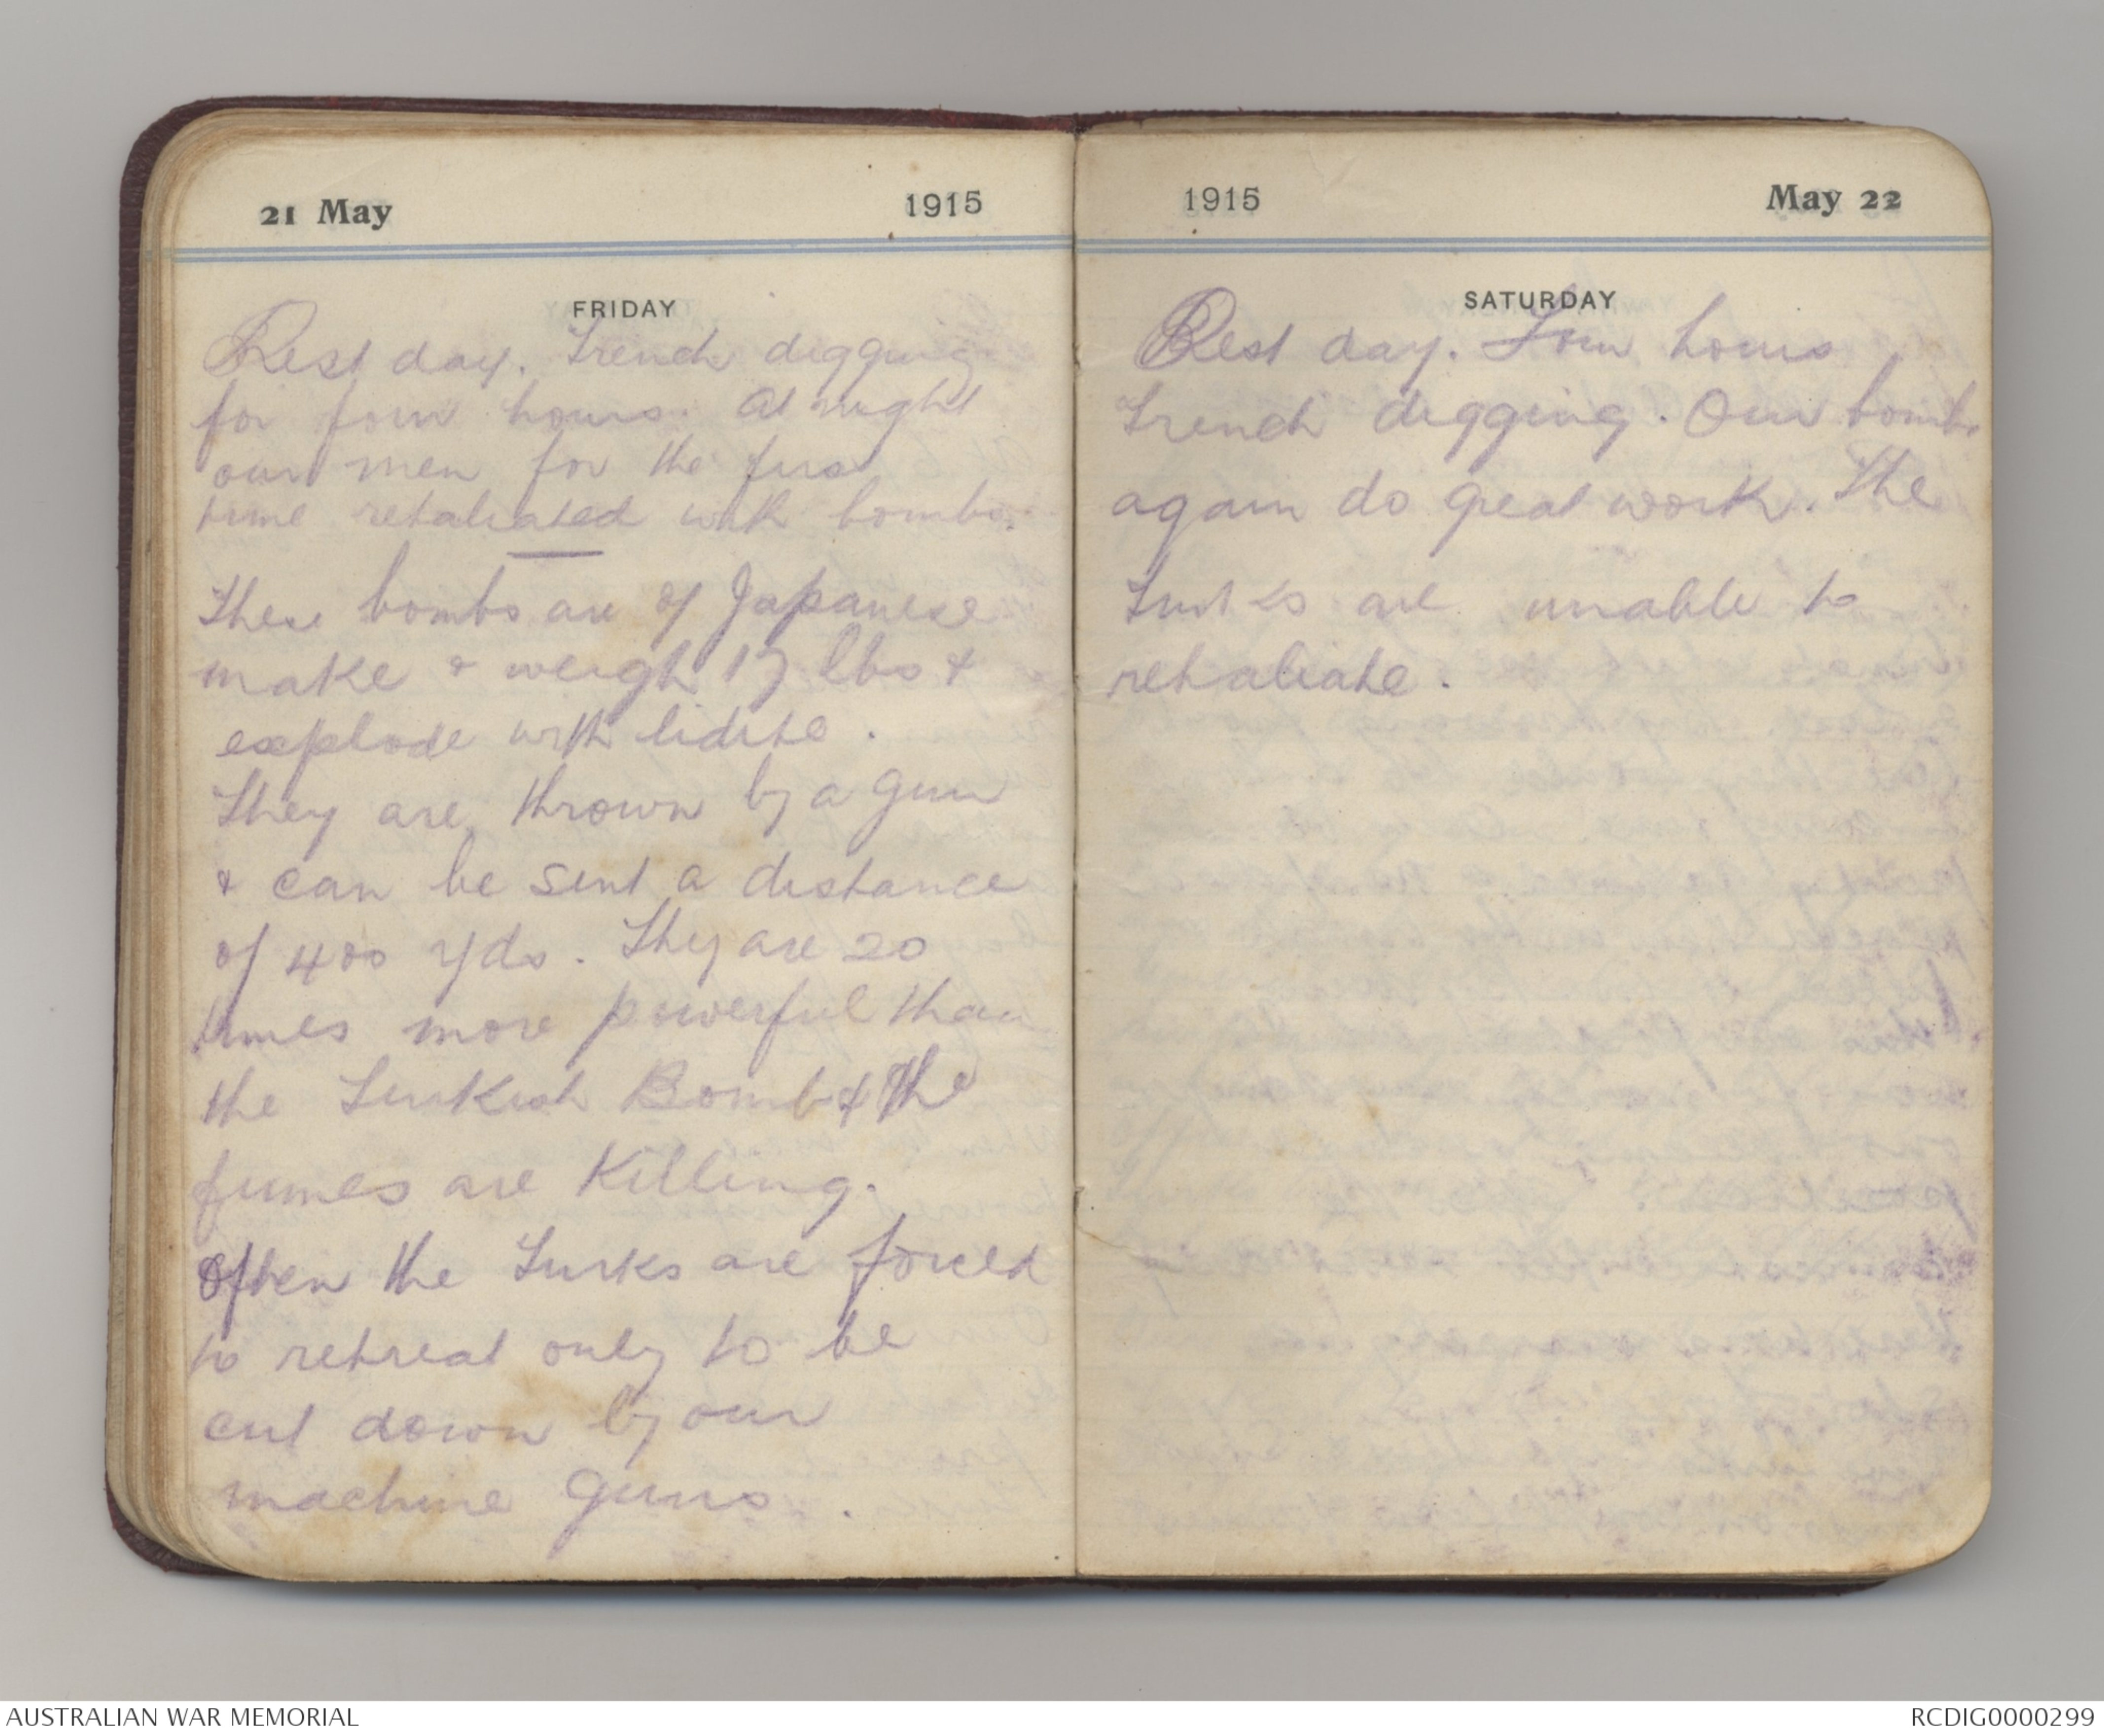 21 May 1915
FRIDAY
Rest day. Trench digging
for four hours. At night
our men for the first
time retaliated with bombs.
These bombs are of Japanese
make & weigh 17 lbs &
explode with lidite.
They are thrown by a gun
& can be sent a distance
of 400 yds. They are 20
times more powerful than
the Turkish Bomb & the
fumes are Killing.
Often the Turks are forced
to retreat only to be
cut down by our
machine guns.
1915 May 22
SATURDAY
Rest day. Four hours
trench digging. Our bombs
again do great work. The
Turks are unable to
retaliate.
AUSTRALIAN WAR MEMORIAL
RCDIG0000299